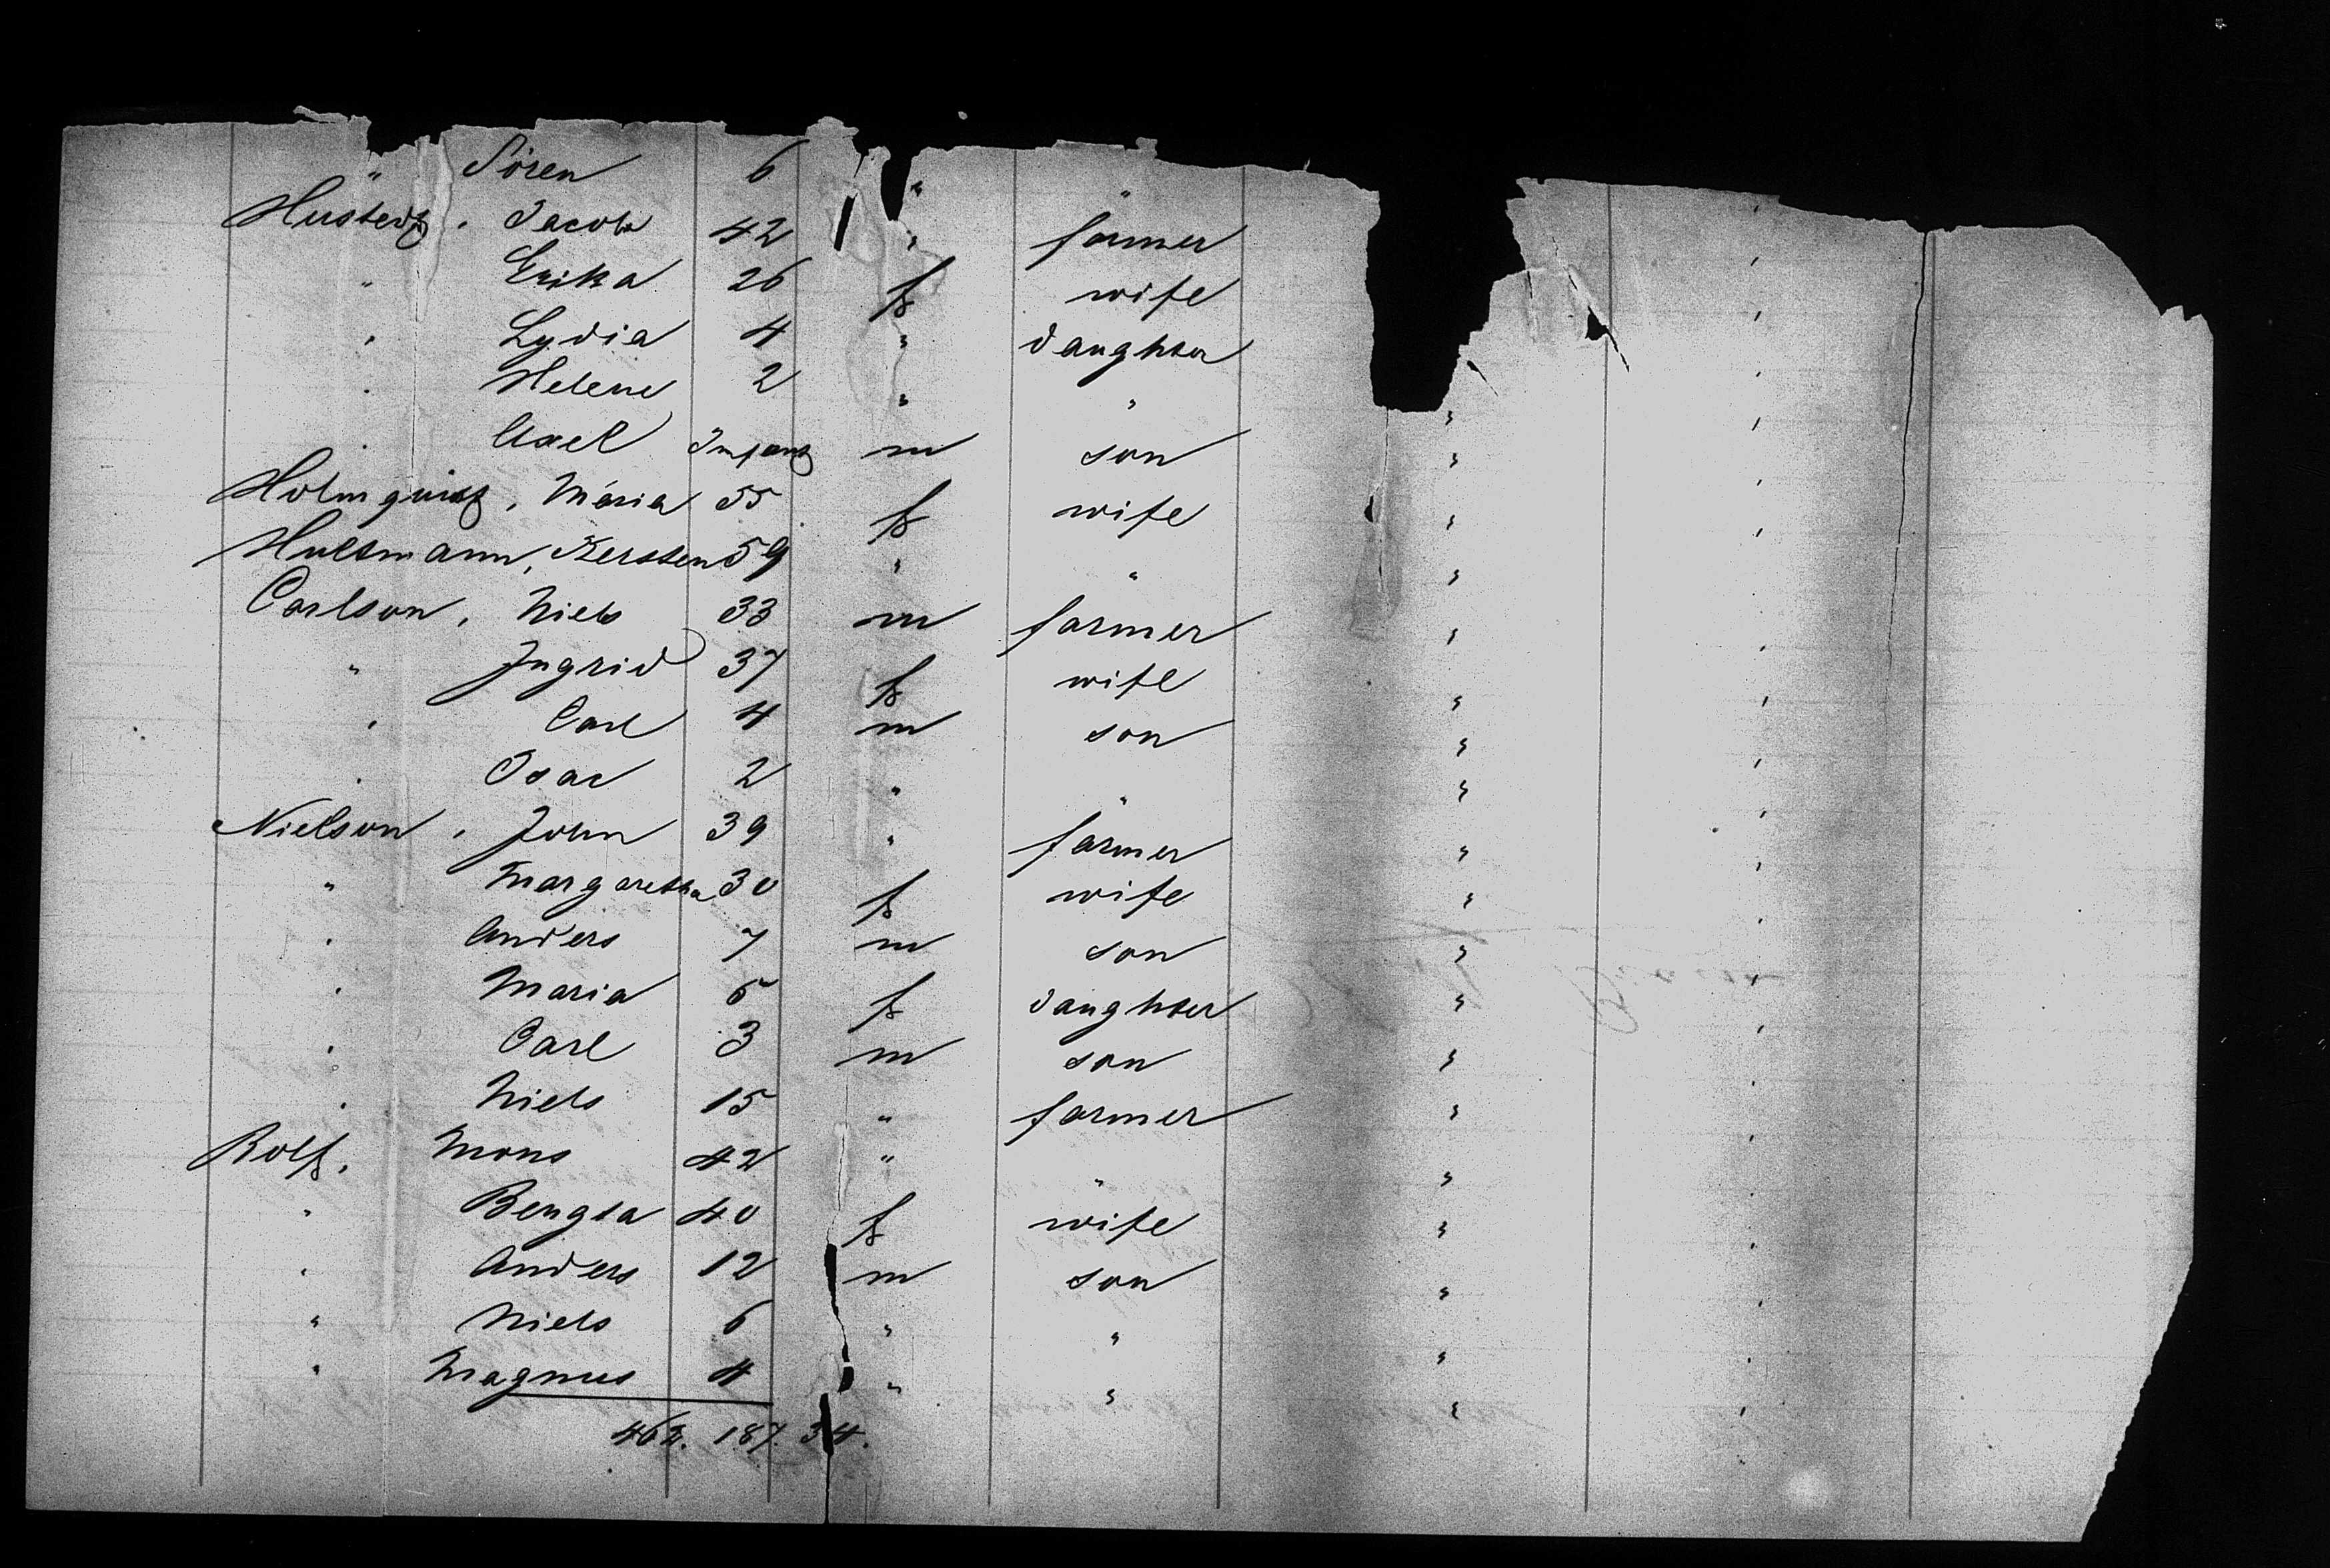 " Sören 6 " "
Husteds, Jacob 42 " farmer
" Erika 26 f wife "
" Lydia 4 " daughter "
" Helene 2 " " " "
" Axel Infant m son " "
Holmquist, Maria 55 f wife " "
Hultmann, Kersten 59 " " "
Carlson, Niels 33 m farmer " "
" Ingrid 37 f wife " "
" Carl 4 m son " "
" Osar 2 " " " "
Nielson, John 39 " farmer " "
" Margaretha 30 f wife " "
" Anders 7 m son " "
" Maria 5 f daughter " "
" Carl 3 m son " "
" Niels 15 " farmer " "
Rolf, Mons 42 " " " "
" Bengta 40 f wife " "
" Anders 12 m son " "
" Niels 6 " " " "
" Magnus 4 " " " "
462. 187. 34.